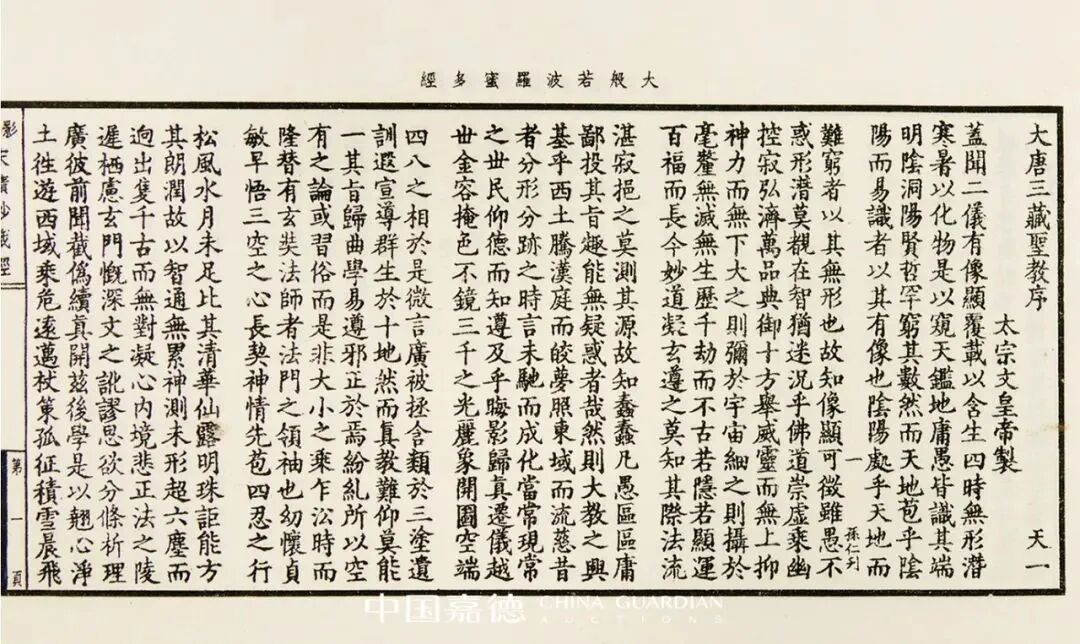 大般若波羅蜜多經
大唐三藏聖教序 天一
太宗文皇帝製
蓋聞二儀有像顯覆載以含生四時無形潛
寒暑以化物是以窺天鑑地庸愚皆識其端
明陰洞陽賢哲罕窮其數然而天地苞乎陰
陽而易識者以其有像也陰陽處乎天地而
一 孫仁刊
難窮者以其無形也故知像顯可徵雖愚不
惑形潛莫覩在智猶迷況乎佛道崇虛乘幽
控寂弘濟萬品典御十方舉威靈而無上抑
神力而無下大之則彌於宇宙細之則攝於
毫釐無滅無生歷千劫而不古若隱若顯運
百福而長今妙道凝玄遵之莫知其際法流
湛寂挹之莫測其源故知蠢蠢凡愚區區庸
鄙投其旨趣能無疑惑者哉然則大教之興
基乎西土騰漢庭而皎夢照東域而流慈昔
者分形分跡之時言未馳而成化當常現常
之世民仰德而知遵及乎晦影歸真遷儀越
世金容掩色不鏡三千之光麗象開圖空端
四八之相於是微言廣被拯含類於三塗遺
訓遐宣導群生於十地然而真教難仰莫能
一其旨歸曲學易遵邪正於焉紛糺所以空
有之論或習俗而是非大小之乘乍沿時而
隆替有玄奘法師者法門之領袖也幼懷貞
敏早悟三空之心長契神情先苞四忍之行
松風水月未足比其清華仙露明珠詎能方
其朗潤故以智通無累神測未形超六塵而
迥出隻千古而無對凝心內境悲正法之陵
遲栖慮玄門慨深文之訛謬思欲分條析理
廣彼前聞截偽續真開茲後學是以翹心淨
土往遊西域乘危遠邁杖策孤征積雪晨飛
影宋磧砂藏經
第一頁
中国嘉德 CHINA GUARDIAN
AUCTIONS